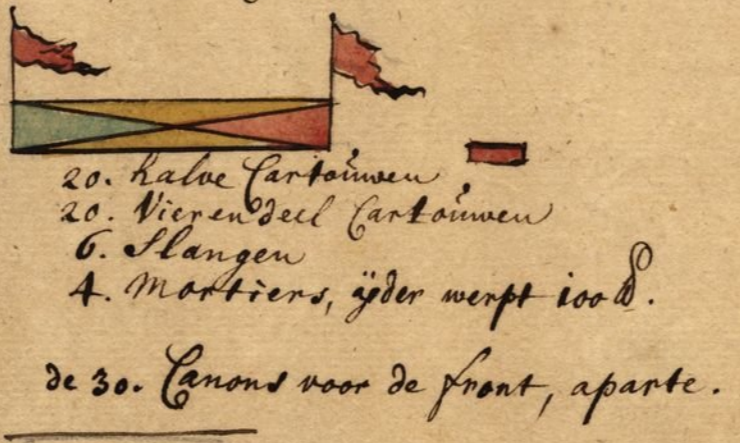 20. Halve Cartouwen
20. Vierendeel Cartouwen
6. Slangen
4. Mortiers, ÿder werpt 100 ℔.
de 30. Canons voor de front, aparte.